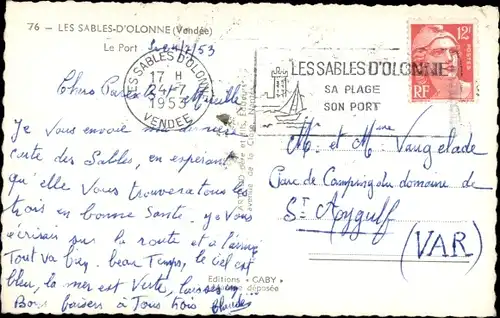 76 - LES SABLES-D'OLONNE (Vendée)
Le Port
LES SABLES D'OLONNE
17 H
24-7
1953
VENDÉE
LES SABLES D'OLONNE
SA PLAGE
SON PORT
12F
POSTES
RF
Chers Parents et
Je Vous envoie ma dernière
carte des Sables, en espérant
qu'elle Vous trouvera tous les
trois en bonne Santé. je Vous
écrirais sur la route et à l'arrivée
Tout va bien. beau Temps, le ciel est
bleu, la mer est Verte,
Bons baisers à Tous trois
M. et Mme Vaugelade
Parc de Camping du domaine de
St Aygulf
(VAR)
Editions "GABY"
déposée